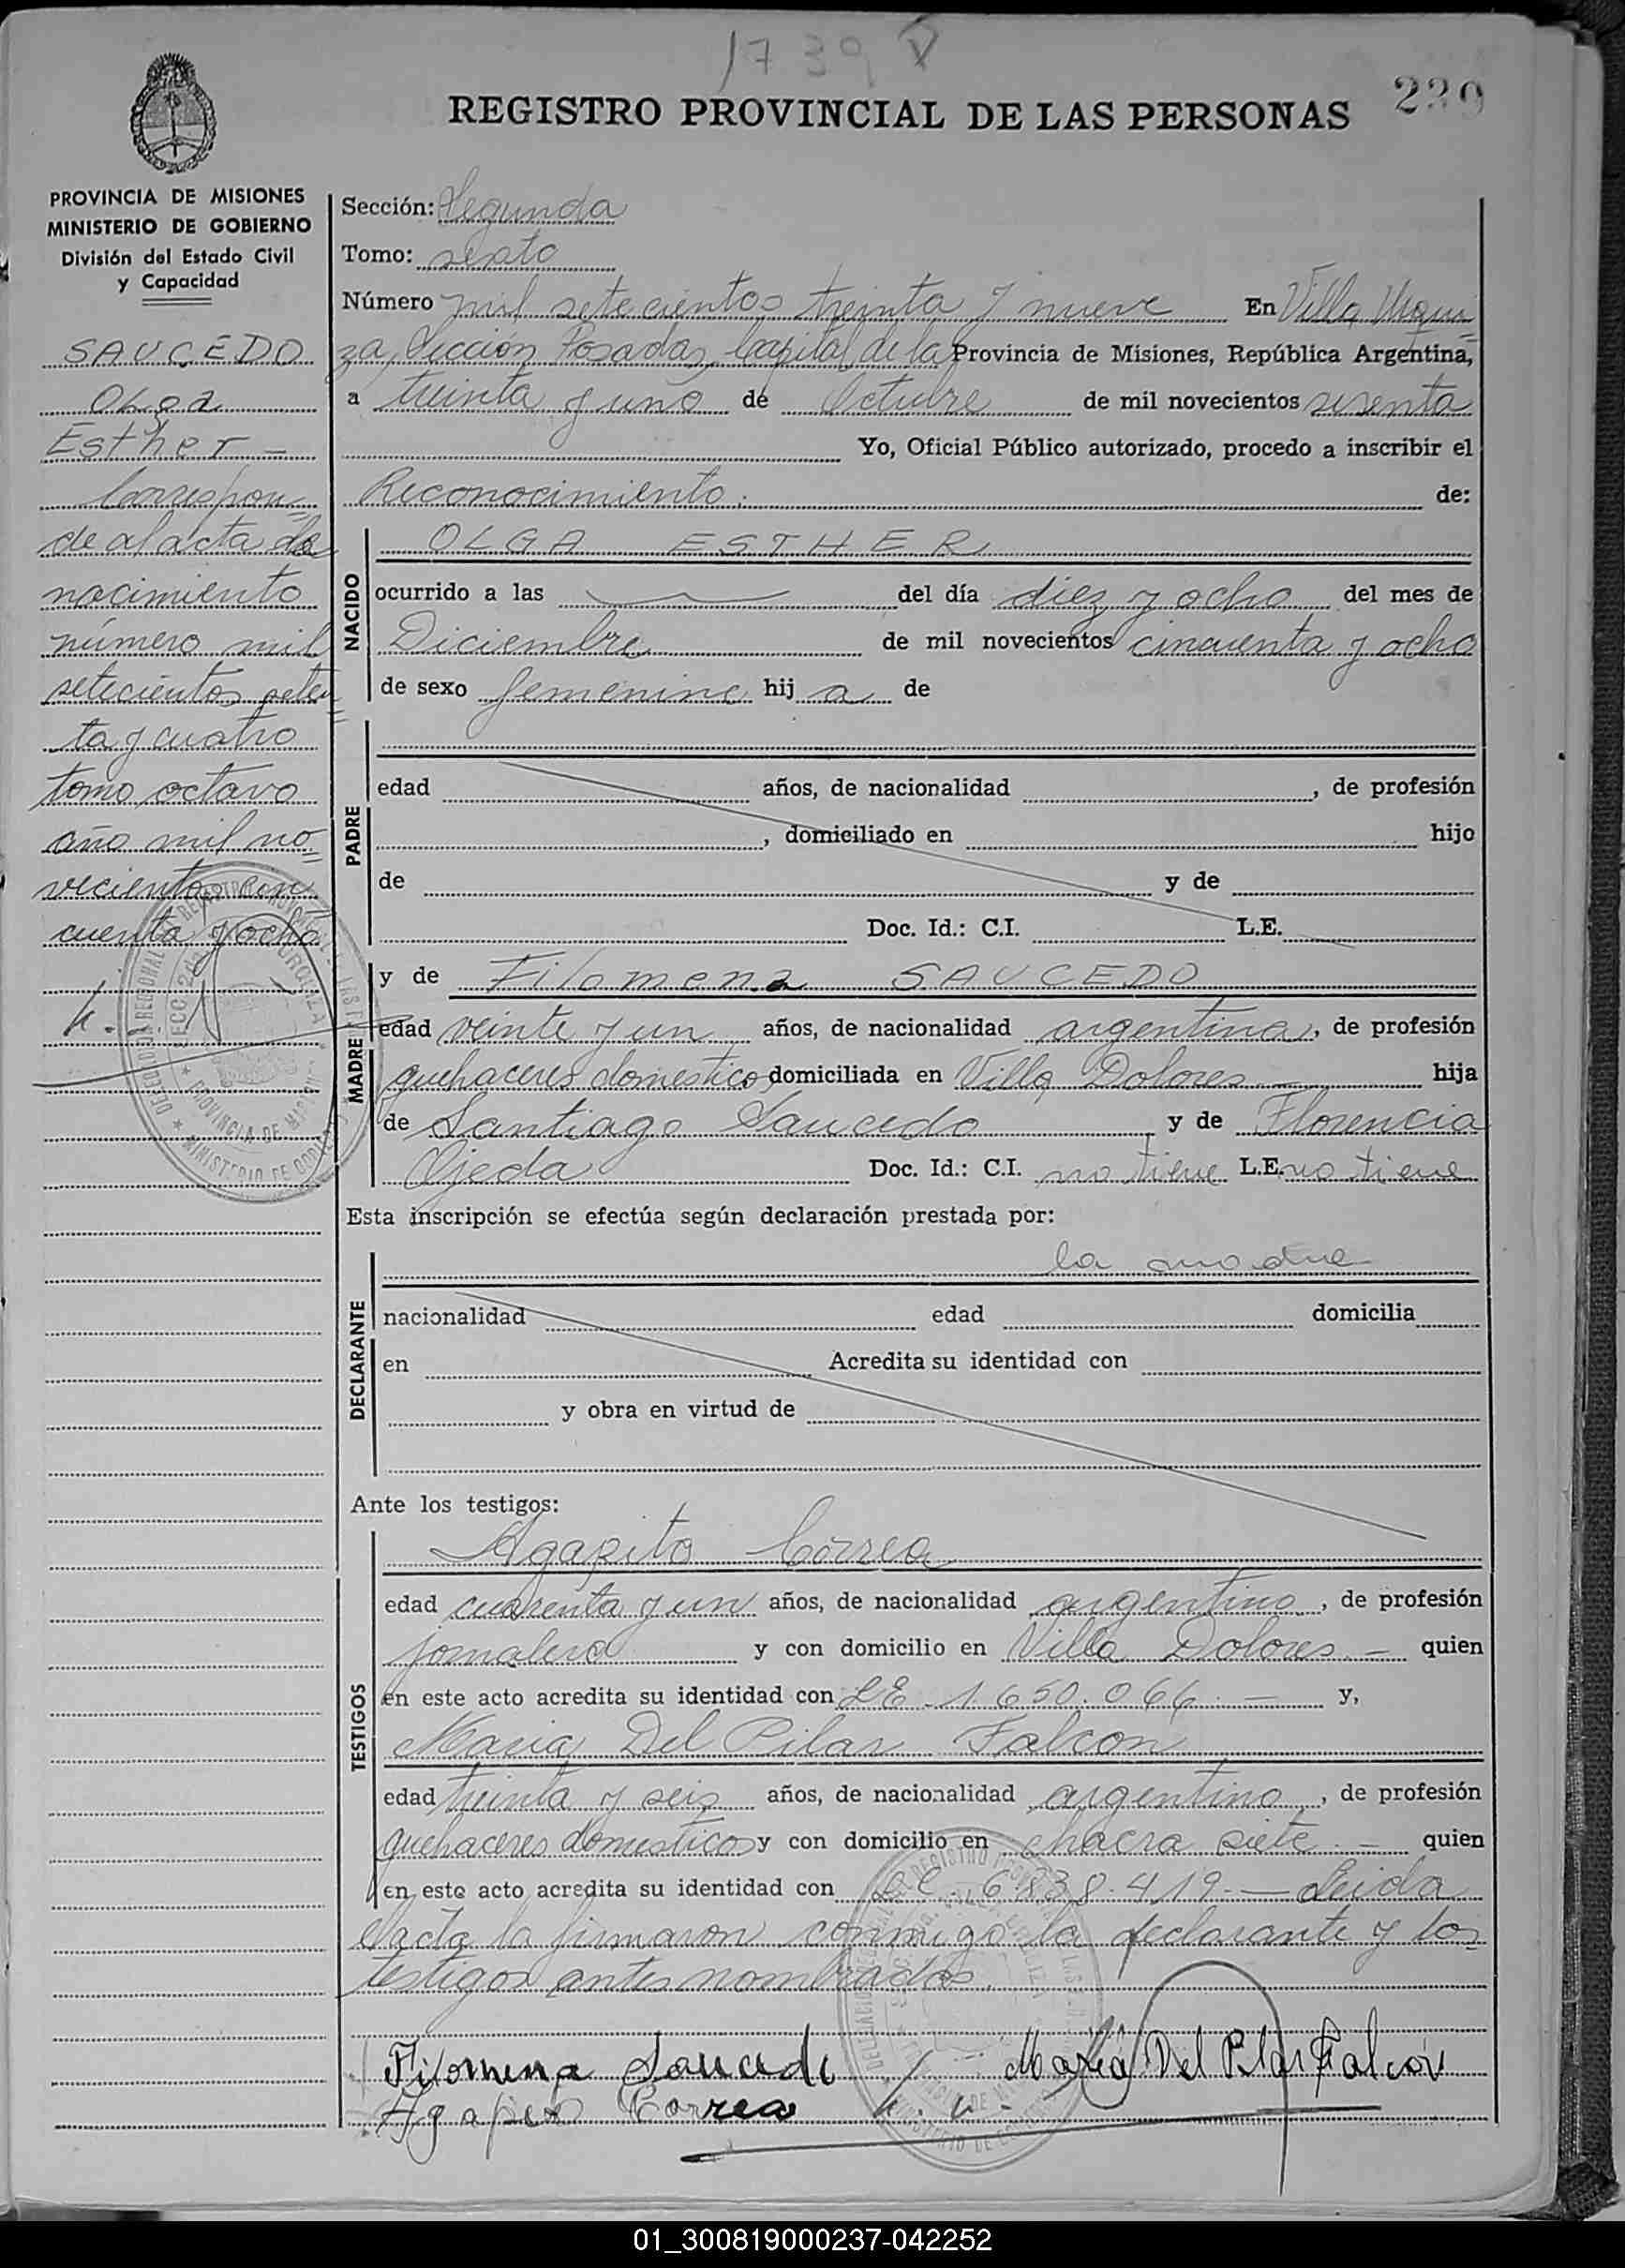 1739
REGISTRO PROVINCIAL DE LAS PERSONAS
PROVINCIA DE MISIONES
MINISTERIO DE GOBIERNO
División del Estado Civil
y Capacidad
SAUCEDO
Olga
Esther -
Correspon=
de al acta de
nacimiento
número mil
setecientos seten=
ta y cuatro
tomo octavo
año mil no=
vecientos cin=
cuenta y ocho
Sección: Segunda
Tomo: sexto
Número mil setecientos treinta y nueve En Villa Urqui=
za, Sección Posadas, Capital de la Provincia de Misiones, República Argentina,
a treinta y uno de Octubre de mil novecientos sesenta
Yo, Oficial Público autorizado, procedo a inscribir el
Reconocimiento. de:
NACIDO
OLGA ESTHER
ocurrido a las del día diez y ocho del mes de
Diciembre de mil novecientos cincuenta y ocho
de sexo femenino hij a de
PADRE
edad años, de nacionalidad , de profesión
, domiciliado en hijo
de y de
Doc. Id.: C.I. L.E.
MADRE
y de Filomena SAUCEDO
edad veinte y un años, de nacionalidad argentina, de profesión
quehaceres domestico domiciliada en Villa Dolores - hija
de Santiago Saucedo y de Florencia
Ojeda Doc. Id.: C.I. no tiene L.E. no tiene
Esta inscripción se efectúa según declaración prestada por:
DECLARANTE
la madre
nacionalidad edad domicilia
en Acredita su identidad con
y obra en virtud de
Ante los testigos:
TESTIGOS
Agapito Correa
edad cuarenta y un años, de nacionalidad argentino, de profesión
jornalero y con domicilio en Villa Dolores. - quien
en este acto acredita su identidad con LE. 1.650.066. - y,
Maria Del Pilar Falcon
edad treinta y seis años, de nacionalidad argentino, de profesión
quehaceres domestico y con domicilio en chacra siete. - quien
en este acto acredita su identidad con LC. 6.838.419. - Leida
el acta la firmaron conmigo la declarante y los
testigos antes nombrados.
Filomena Saucedo Maria Del Pilar Falcon
Agapito Correa
01_300819000237-042252